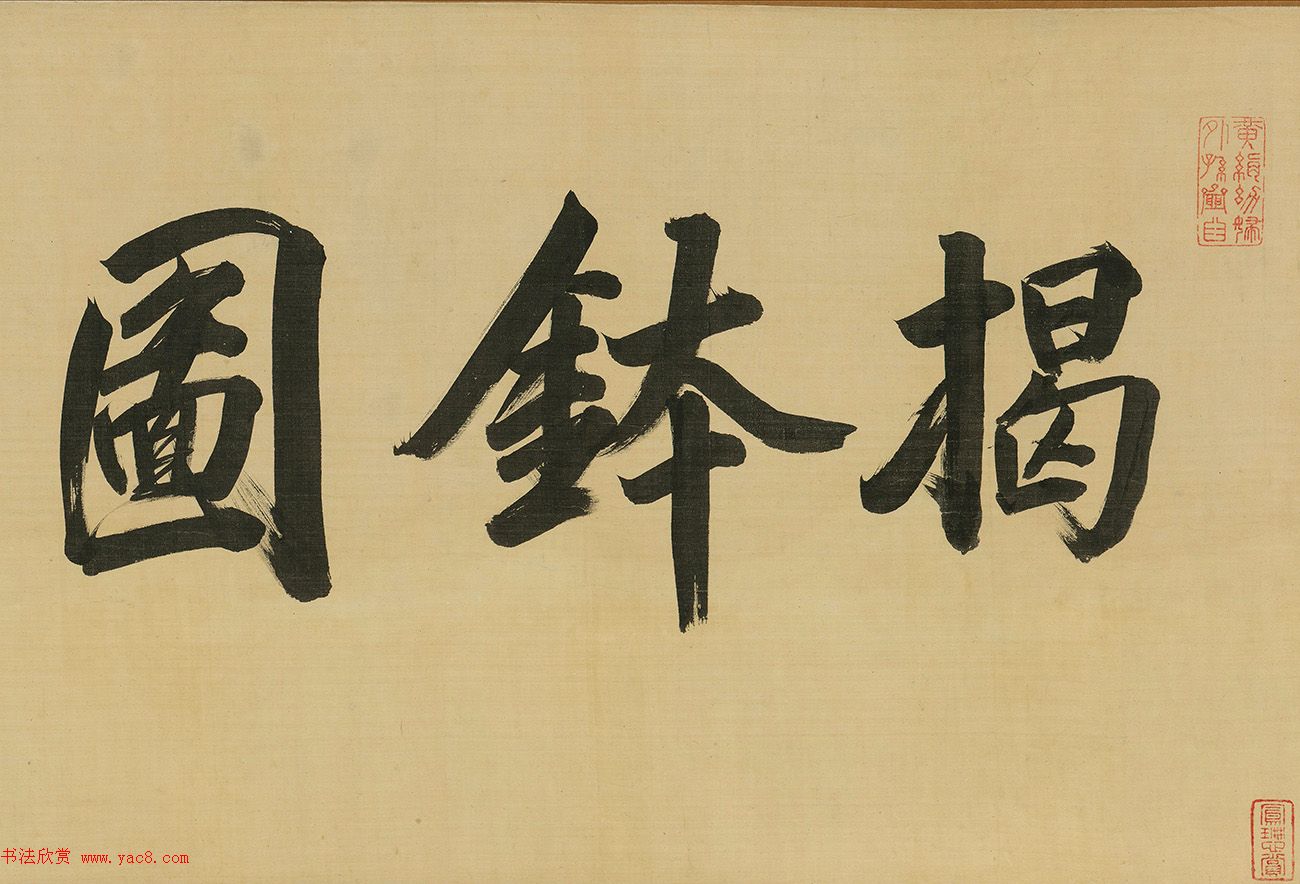 揭鉢圖
黃絹幼婦
外孫齏臼
书法欣赏 www.yac8.com